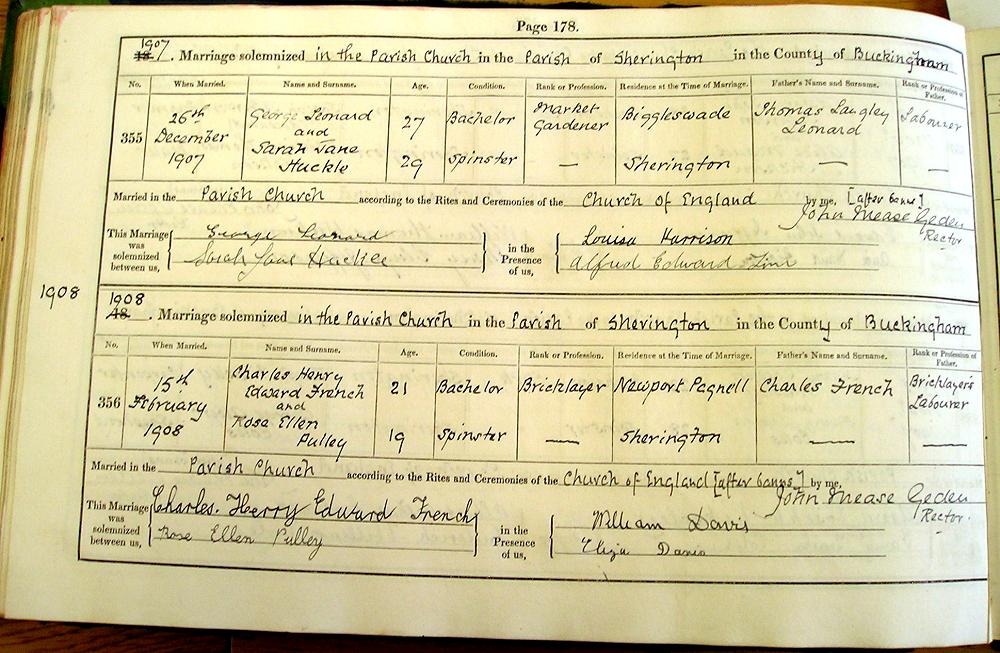 Page 178.
1907
18 . Marriage solemnized in the Parish Church in the Parish of Sherington in the County of Buckingham
No. When Married. Name and Surname. Age. Condition. Rank or Profession. Residence at the Time of Marriage. Father's Name and Surname. Rank or Profession of Father.
355 26th December 1907 George Leonard 27 Bachelor Market Gardener Biggleswade Thomas Langley Leonard Labourer
and
Sarah Jane Huckle 29 Spinster — Sherington — —
Married in the Parish Church according to the Rites and Ceremonies of the Church of England by me, [after banns]
John Mease Geden
Rector
This Marriage was solemnized between us, George Leonard in the Presence of us, Louisa Harrison
Sarah Jane Huckle Alfred Edward
1908
1908
18 . Marriage solemnized in the Parish Church in the Parish of Sherington in the County of Buckingham
No. When Married. Name and Surname. Age. Condition. Rank or Profession. Residence at the Time of Marriage. Father's Name and Surname. Rank or Profession of Father.
356 15th February 1908 Charles Henry Edward French 21 Bachelor Bricklayer Newport Pagnell Charles French Bricklayer's Labourer
and
Rosa Ellen Pulley 19 Spinster — Sherington — —
Married in the Parish Church according to the Rites and Ceremonies of the Church of England [after banns] by me,
John Mease Geden
Rector.
This Marriage was solemnized between us, Charles. Henry Edward French in the Presence of us, William Davis
Rose Ellen Pulley Eliza Davis